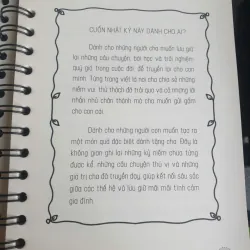 CUỐN NHẬT KÝ NÀY DÀNH CHO AI?
Dành cho những người cha muốn lưu giữ
lại những câu chuyện, bài học và trải nghiệm
quý giá trong cuộc đời để truyền lại cho con
mình. Từng trang viết là nơi cha chia sẻ những
niềm vui, thử thách đã trải qua và cả những lời
nhắn nhủ chân thành mà cha muốn gửi gắm
cho con cái.
Dành cho những người con muốn tạo ra
một món quà đặc biệt dành tặng cha. Đây là
không gian ghi lại những kỷ niệm chưa từng
được kể, những câu chuyện thú vị và những
giá trị cha đã truyền dạy, giúp kết nối sâu sắc
giữa các thế hệ và lưu giữ mãi mãi tình cảm
gia đình.